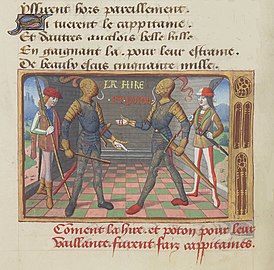 Yssirent hors pareillement.
Si tuerent le cappitaine
Et dautres anglois belle bille
En gaignant la pour leur estraine
De beaulx escus cinquante mille.
LA HIRE
ET POTON
Coment la hire et poton pour leur
vaillance furent faiz cappitaines.